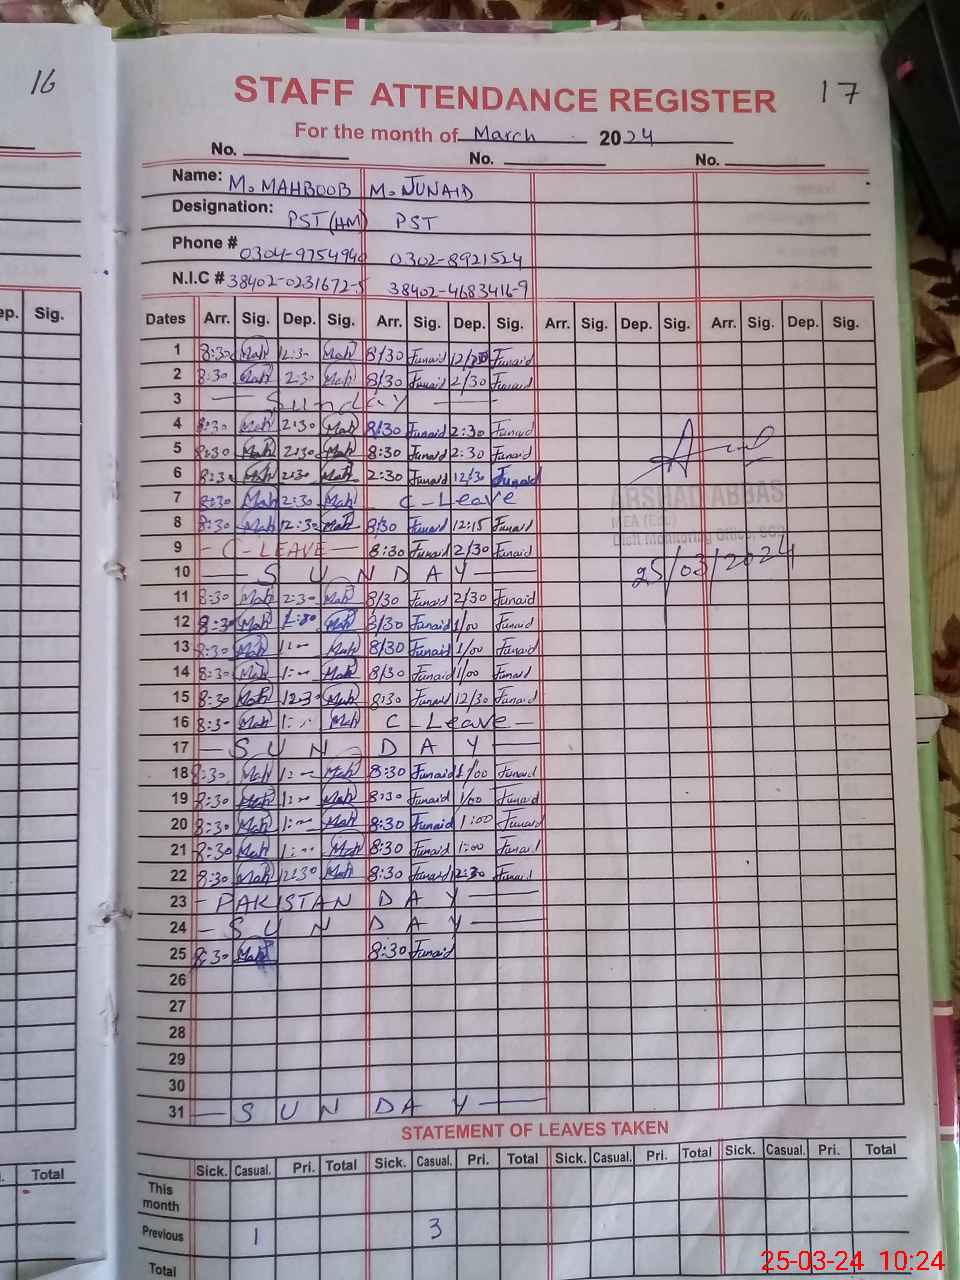 16
STAFF ATTENDANCE REGISTER 17
For the month of March 2024
No. No. No.
Name: M. MAHBOOB M. JUNAID
Designation: PST (HM) PST
Phone # 0304-9754940 0302-8921524
N.I.C # 38402-0231672-5 38402-4683416-9
ep. Sig. Dates Arr. Sig. Dep. Sig. Arr. Sig. Dep. Sig. Arr. Sig. Dep. Sig. Arr. Sig. Dep. Sig.
1 8:30 Mah 12:30 Mah 8/30 Junaid 12/30 Junaid
2 8:30 Mah 2:30 Mah 8/30 Junaid 2/30 Junaid
3 Sunday
4 8:30 Mah 2:30 Mah 8/30 Junaid 2:30 Junaid
5 8:30 Mah 2:30 Mah 8:30 Junaid 2:30 Junaid
6 8:30 Mah 2:30 Mah 2:30 Junaid 12/30 Junaid
7 8:30 Mah 2:30 Mah C-Leave
8 8:30 Mah 12:30 Mah 8/30 Junaid 12:15 Junaid
9 - C-LEAVE - 8:30 Junaid 2/30 Junaid
10 SUNDAY
11 8:30 Mah 2:30 Mah 8/30 Junaid 2/30 Junaid
12 8:30 Mah Mah 8/30 Junaid 1/00 Junaid
13 8:30 Mah 1:00 Mah 8/30 Junaid 1/00 Junaid
14 8:30 Mah 1:00 Mah 8/30 Junaid 1/00 Junaid
15 8:30 Mah 12:30 Mah 8:30 Junaid 12/30 Junaid
16 8:30 Mah 1:00 Mah C-Leave -
17 - SUN DAY -
18 8:30 Mah 1:00 Mah 8:30 Junaid 1/00 Junaid
19 8:30 Mah 1:00 Mah 8:30 Junaid 1/00 Junaid
20 8:30 Mah 1:00 Mah 8:30 Junaid 1:00 Junaid
21 8:30 Mah 1:00 Mah 8:30 Junaid 1:00 Junaid
22 8:30 Mah 12:30 Mah 8:30 Junaid 12:30 Junaid
23 - PAKISTAN DAY -
24 - SUN DAY -
25 8:30 Mah 8:30 Junaid
26
27
28
29
30
31 - SUN DAY -
ARSHAD ABBAS
MEA (Edu)
25/03/2024
STATEMENT OF LEAVES TAKEN
Total Sick. Casual. Pri. Total Sick. Casual. Pri. Total Sick. Casual. Pri. Total Sick. Casual. Pri. Total
This month
Previous 1 3
Total
25-03-24 10:24